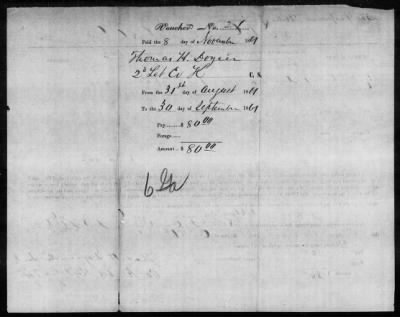 Voucher No.
Paid the 8 day of November 1861
Thomas H. Dozier
2d Lt Co K
C. S.
From the 31st day of August 1861
To the 30 day of September 1861
Pay....... $ 80 00
Forage......
Amount... $ 80 00
6 Ga